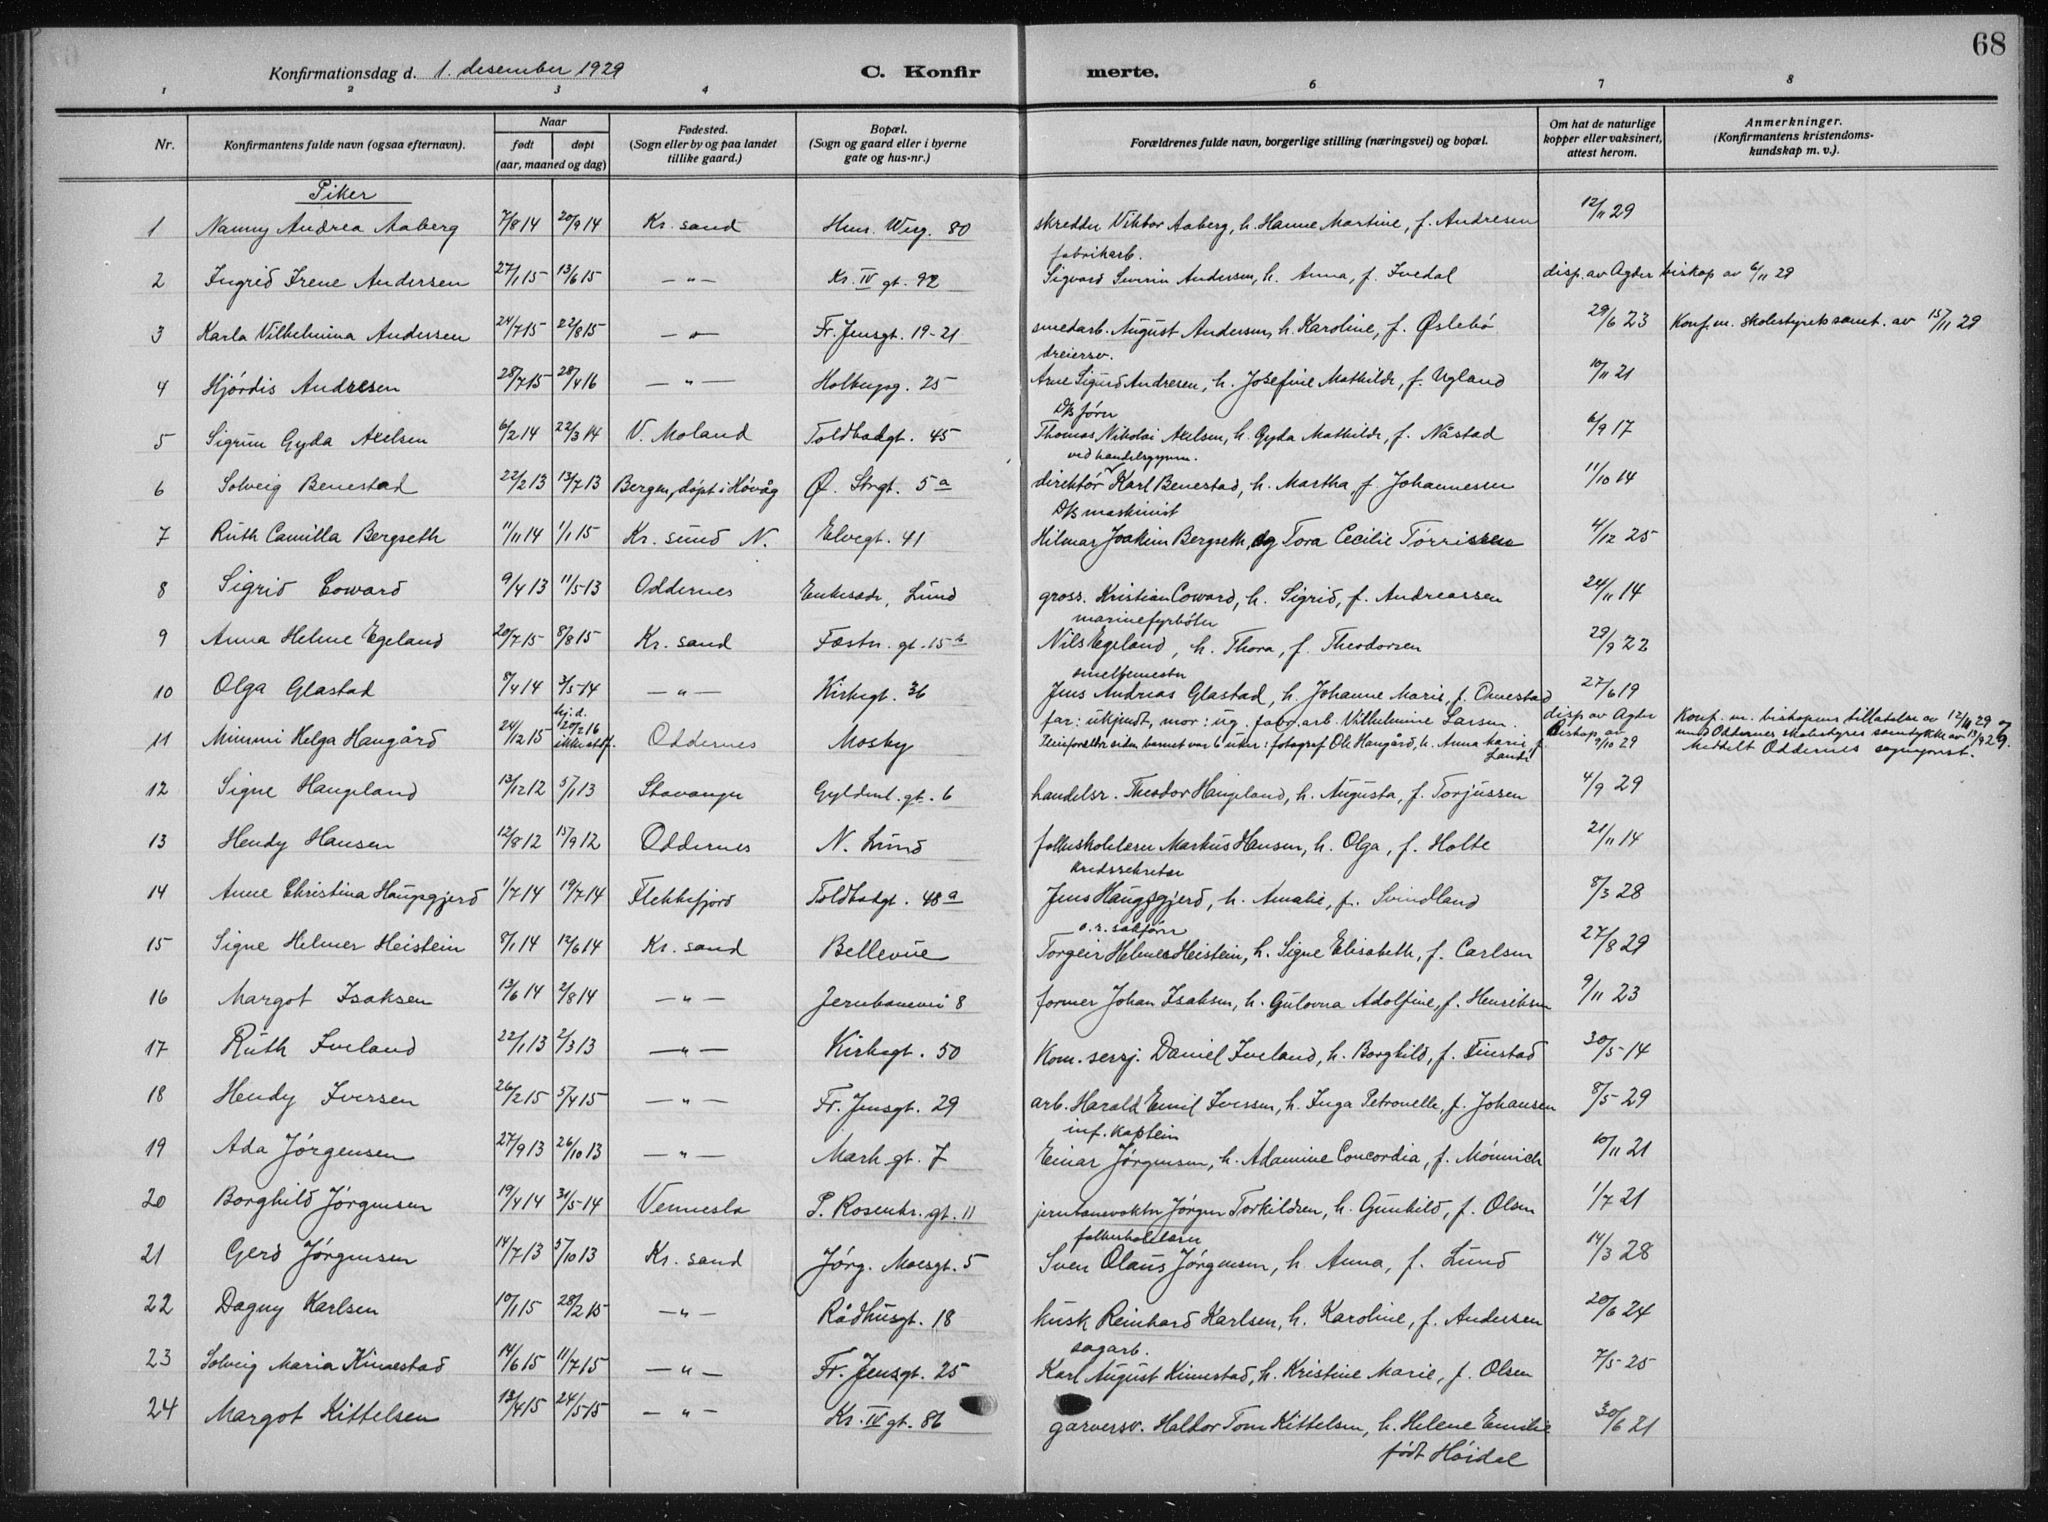 68
Konfirmationsdag d. 1. desember 1929 C. Konfirmerte.
1 2 3 4 6 7 8
Nr. Konfirmantens fulde navn (ogsaa efternavn). Naar født døpt (aar, maaned og dag) Fødested. (Sogn eller by og paa landet tillike gaard.) Bopæl. (Sogn og gaard eller i byerne gate og hus-nr.) Forældrenes fulde navn, borgerlige stilling (næringsvei) og bopæl. Om hat de naturlige kopper eller vaksinert, attest herom. Anmerkninger. (Konfirmantens kristendoms-kundskap m. v.)
Piker
1 Nanny Andrea Aaberg 7/8 14 20/9 14 Kr. sand Henr. Werg. 80 skredder Viktor Aaberg, h. Hanne Martine, f. Andresen 12/11 29
fabrikarb.
2 Ingrid Irene Andersen 27/1 15 13/6 15 — " — Kr. IV gt. 92 Sigvard Severin Andersen, h. Anna, f. Ivedal disp. av Agder biskop av 6/11 29
3 Karla Vilhelmina Andersen 24/7 15 22/8 15 — " — Fr. Jensgt. 19-21 smedarb. August Andersen, h. Karoline, f. Øslebø 29/6 23 Konf. m. skolestyrets samt. av 15/11 29
dreiersv.
4 Hjördis Andresen 28/7 15 28/4 16 — " — Holbergg. 25 Arne Sigurd Andresen, h. Josefine Mathilde, f. Ugland 10/11 21
D/S fører
5 Sigrun Gyda Axelsen 6/2 14 22/3 14 V. Moland Toldbodgt. 45 Thomas Nikolai Axelsen, h. Gyda Mathilde, f. Nåstad 6/9 17
ved handelsgymn.
6 Solveig Benestad 22/2 13 13/7 13 Bergen, døpt i Høvåg Ø. Strgt. 5 a direktør Karl Benestad, h. Martha, f. Johannessen 11/10 14
D/S maskinist
7 Ruth Camilla Bergseth 11/11 14 1/1 15 Kr. sund N. Elvegt. 41 Hilmar Joakim Bergseth, og Tora Cecilie Torrissen 4/12 25
8 Sigrid Coward 9/4 13 11/5 13 Oddernes Enkesæde, Lund gross. Kristian Coward, h. Sigrid, f. Andreassen 24/11 14
marinefyrbøter
9 Anna Helene Egeland 20/7 15 8/8 15 Kr. sand Fæstn. gt. 15 b Nils Egeland, h. Thora, f. Theodorsen 29/9 22
smeltemester
10 Olga Glastad 8/4 14 3/5 14 — " — Kirkegt. 36 Jens Andreas Glastad, h. Johanne Marie, f. Omestad 27/6 19
11 Mimmi Helga Haugård 24/12 15 hj. d. 20/2 16 ikke stdf. Oddernes Mosby far: ukjendt, mor: ug. fabr. arb. Vilhelmine Larsen. disp. av Agder Biskop av 9/10 29 Konf. m. biskopens tillatelse av 12/11 29 og
Pleieforeldre siden barnet var 6 uker: fotograf Ole Haugård, h. Anna Marie, f. Lande med Oddernes skolestyres samtykke av 13/9 29.
Meddelt Oddernes sogneprest.
12 Signe Haugeland 13/12 12 5/1 13 Stavanger Gyldenl. gt. 6 handelsr. Theodor Haugeland, h. Augusta, f. Torjussen 4/9 29
13 Hendy Hansen 12/8 12 15/9 12 Oddernes N. Lund folkeskolelærer Markus Hansen, h. Olga, f. Holte 21/11 14
kredssekretær
14 Anne Christina Haugsgjerd 1/7 14 19/7 14 Flekkefjord Toldbodgt. 48 a Jens Haugsgjerd, h. Amalie, f. Svindland 8/3 28
o. r. sakfører
15 Signe Helmer Heistein 8/1 14 12/6 14 Kr. sand Bellevue Torgeir Helmer Heistein, h. Signe Elisabeth, f. Carlsen 27/8 29
16 Margot Isaksen 13/6 14 2/8 14 — " — Jernbanevei 8 former Johan Isaksen, h. Gulovna Adolfine, f. Henriksen 9/11 23
17 Ruth Iveland 22/1 13 2/3 13 — " — Kirkegt. 50 Kom. sersj. Daniel Iveland, h. Borghild, f. Finstad 30/5 14
18 Hendy Iversen 26/2 15 5/4 15 — " — Fr. Jensgt. 29 arb. Harald Emil Iversen, h. Inga Petronelle, f. Johansen 8/5 29
inf. kaptein
19 Ada Jørgensen 27/9 13 26/10 13 — " — Mark. gt. 7 Einar Jørgensen, h. Adamine Concordia, f. Mönnich 10/11 21
20 Borghild Jørgensen 19/4 14 31/5 14 Vennesla P. Rosenkr. gt. 11 jernbanevokter Jørgen Torkildsen, h. Gunhild, f. Olsen 1/7 21
folkeskolelærer
21 Gerd Jørgensen 14/7 13 5/10 13 Kr. sand Jørg. Moesgt. 5 Sven Olaus Jørgensen, h. Anna, f. Lund 14/3 28
22 Dagny Karlsen 10/1 15 28/2 15 — " — Rådhusgt. 18 kusk Reinhard Karlsen, h. Karoline, f. Andersen 20/6 24
sagarb.
23 Solveig Maria Kinnestad 14/6 15 11/7 15 — " — Fr. Jensgt. 25 Karl August Kinnestad, h. Kristine Marie, f. Olsen 7/5 25
24 Margot Kittelsen 13/4 15 24/5 15 — " — Kr. IV gt. 86 garversv. Haldor Tom Kittelsen, h. Helene Emilie 30/6 21
født Høidal